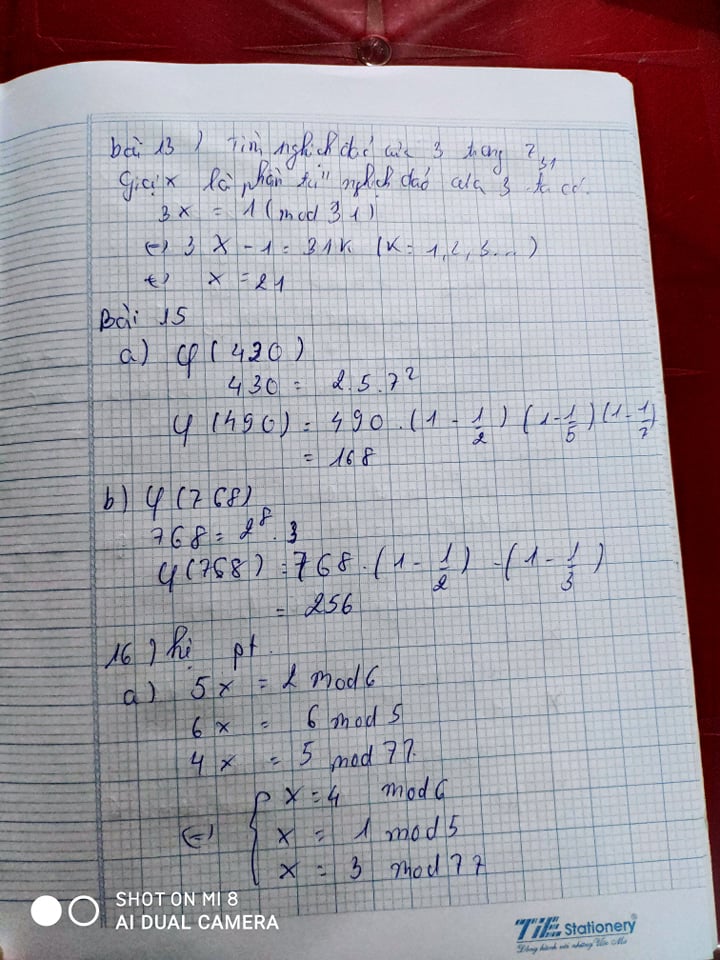 bài 13) Tìm nghịch đảo của 3 trong Z₃₁
Giả x là phần tử nghịch đảo của 3 ta có.
3x = 1 (mod 31)
(=) 3x - 1 = 31K (K = 1, 2, 3...)
(=) x = 21
Bài 15
a) φ(420)
430 = 2.5.7²
φ(490) = 490.(1 - 1/2)(1 - 1/5)(1 - 1/7)
= 168
b) φ(768)
768 = 2⁸.3
φ(768) = 768.(1 - 1/2) - (1 - 1/3)
= 256
16) hệ pt.
a) 5x = 2 mod 6
6x = 6 mod 5
4x = 5 mod 77.
(=) { x = 4 mod 6
x = 1 mod 5
x = 3 mod 77
SHOT ON MI 8
AI DUAL CAMERA
TiE Stationery®
Đồng hành với những Ước Mơ